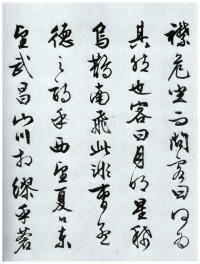 襟危坐而問客曰何為
其然也客曰月明星稀
烏鵲南飛此非曹孟
德之詩乎西望夏口東
望武昌山川相繆乎蒼